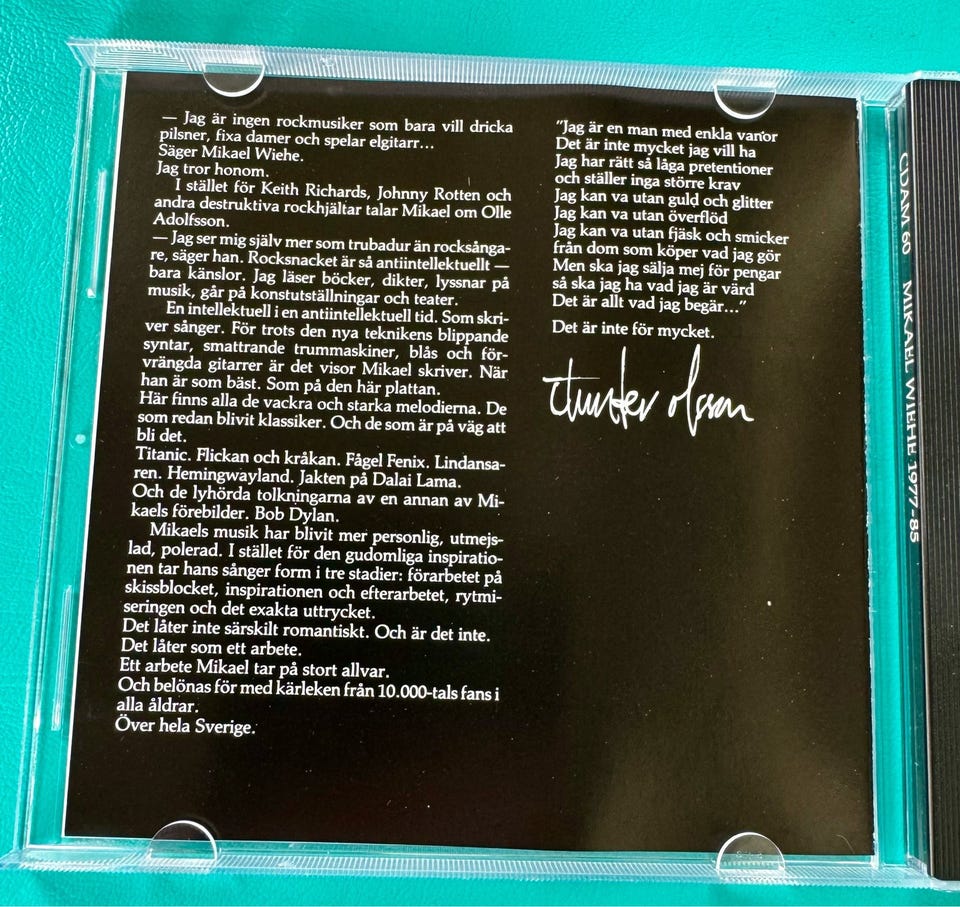 — Jag är ingen rockmusiker som bara vill dricka
pilsner, fixa damer och spelar elgitarr...
Säger Mikael Wiehe.
Jag tror honom.
I stället för Keith Richards, Johnny Rotten och
andra destruktiva rockhjältar talar Mikael om Olle
Adolfsson.
— Jag ser mig själv mer som trubadur än rocksånga-
re, säger han. Rocksnacket är så antiintellektuellt —
bara känslor. Jag läser böcker, dikter, lyssnar på
musik, går på konstutställningar och teater.
En intellektuell i en antiintellektuell tid. Som skri-
ver sånger. För trots den nya teknikens blippande
syntar, smattrande trummaskiner, blås och för-
vrängda gitarrer är det visor Mikael skriver. När
han är som bäst. Som på den här plattan.
Här finns alla de vackra och starka melodierna. De
som redan blivit klassiker. Och de som är på väg att
bli det.
Titanic. Flickan och kråkan. Fågel Fenix. Lindansa-
ren. Hemingwayland. Jakten på Dalai Lama.
Och de lyhörda tolkningarna av en annan av Mi-
kaels förebilder. Bob Dylan.
Mikaels musik har blivit mer personlig, utmejs-
lad, polerad. I stället för den gudomliga inspiratio-
nen tar hans sånger form i tre stadier: förarbetet på
skissblocket, inspirationen och efterarbetet, rytmi-
seringen och det exakta uttrycket.
Det låter inte särskilt romantiskt. Och är det inte.
Det låter som ett arbete.
Ett arbete Mikael tar på stort allvar.
Och belönas för med kärleken från 10.000-tals fans i
alla åldrar.
Över hela Sverige.
"Jag är en man med enkla vanor
Det är inte mycket jag vill ha
Jag har rätt så låga pretentioner
och ställer inga större krav
Jag kan va utan guld och glitter
Jag kan va utan överflöd
Jag kan va utan fjäsk och smicker
från dom som köper vad jag gör
Men ska jag sälja mej för pengar
så ska jag ha vad jag är värd
Det är allt vad jag begär..."
Det är inte för mycket.
olsson
CDAM 60 MIKAEL WIEHE 1977-85